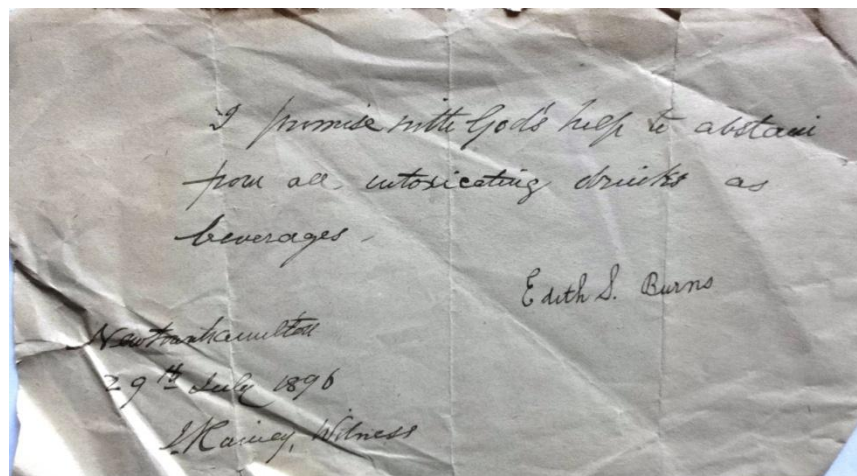 I promise with God's help to abstain
from all intoxicating drinks as
beverages.
Edith S. Burns
Newtownhamilton
29th July 1896
Witness